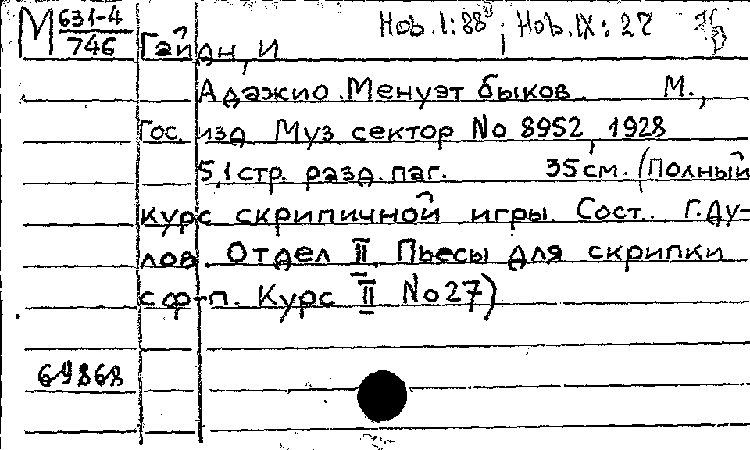 М 631-4 Нов. I: 88; Нов. IX: 27
746
Гайдн, И
Адажио. Менуэт быков. М.,
Гос. изд. Муз сектор No 8952, 1928
5,1 стр. разд. паг. 35 см. (Полный
курс скрипичной игры. Сост. Г. Ду-
лов. Отдел II. Пьесы для скрипки
с ф-п. Курс II No 27)
69868